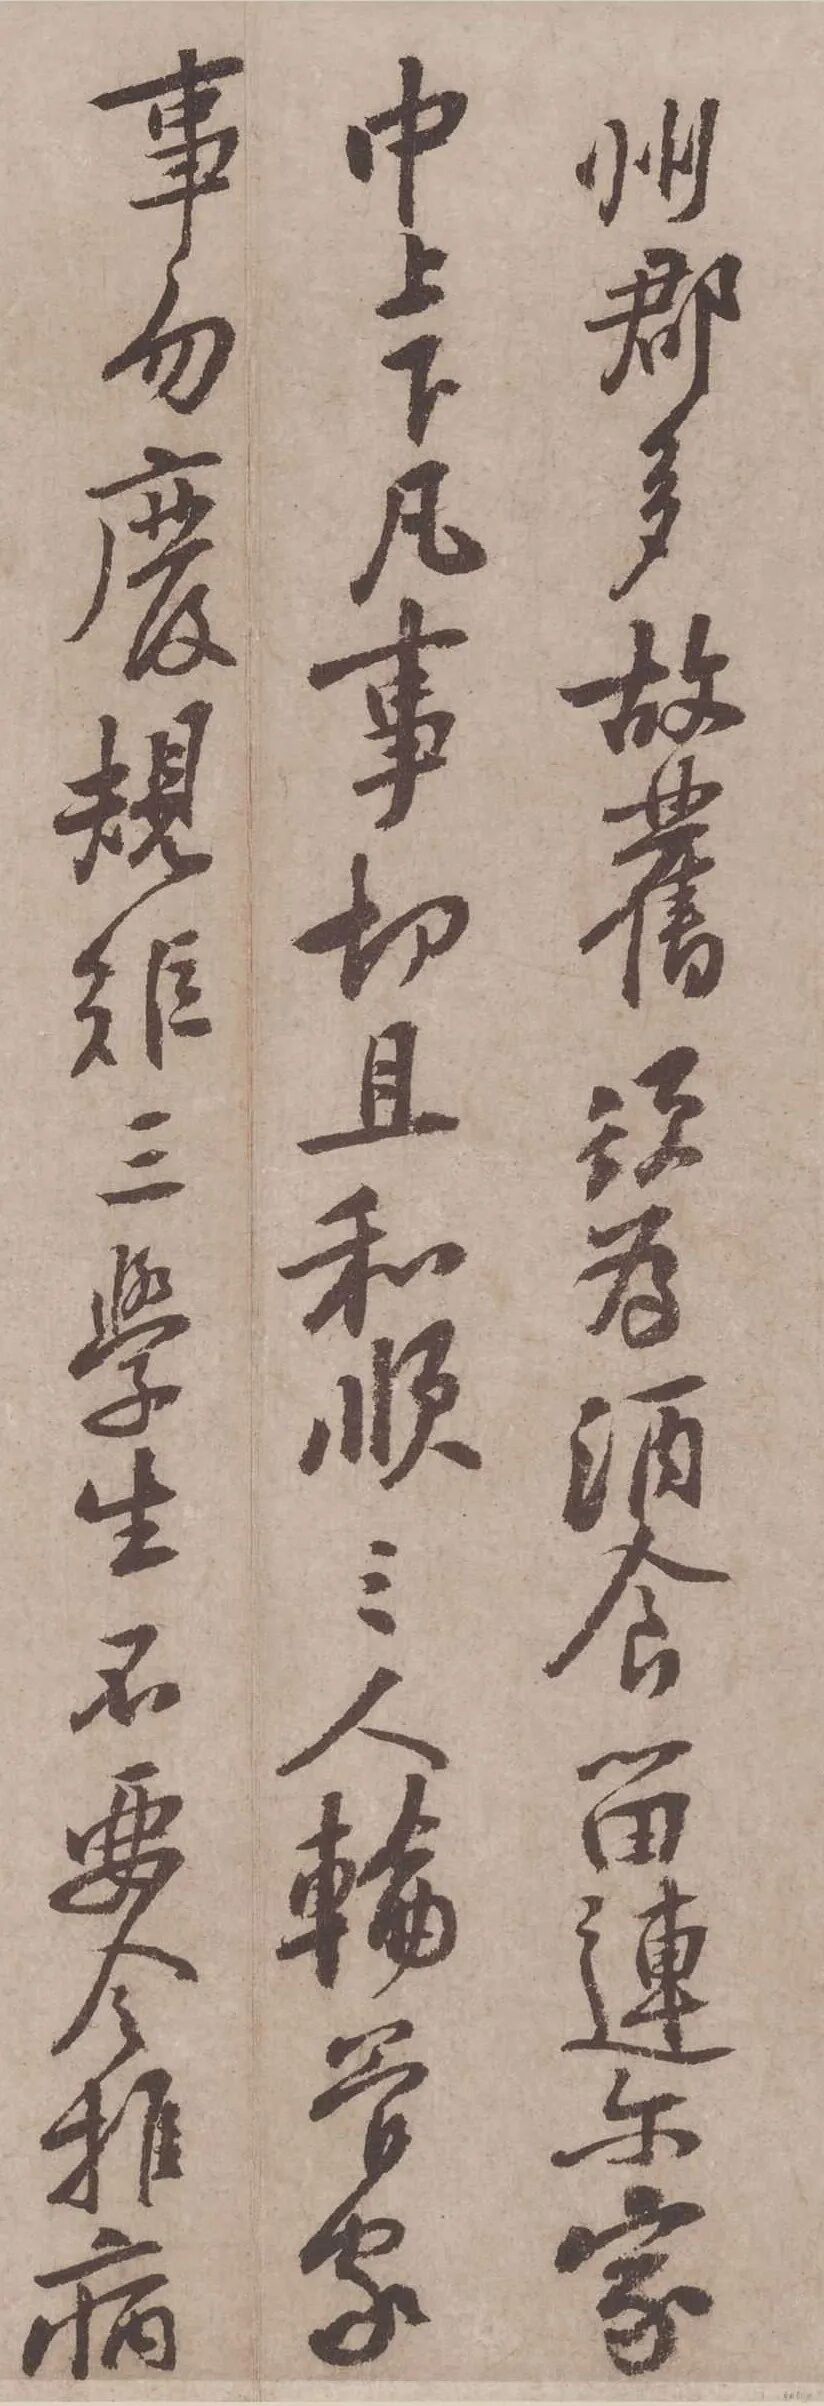 州郡多故舊須為酒食留連尔家
中上下凡事切且和順三人輪管家
事勿廢規矩三學生不要令推病